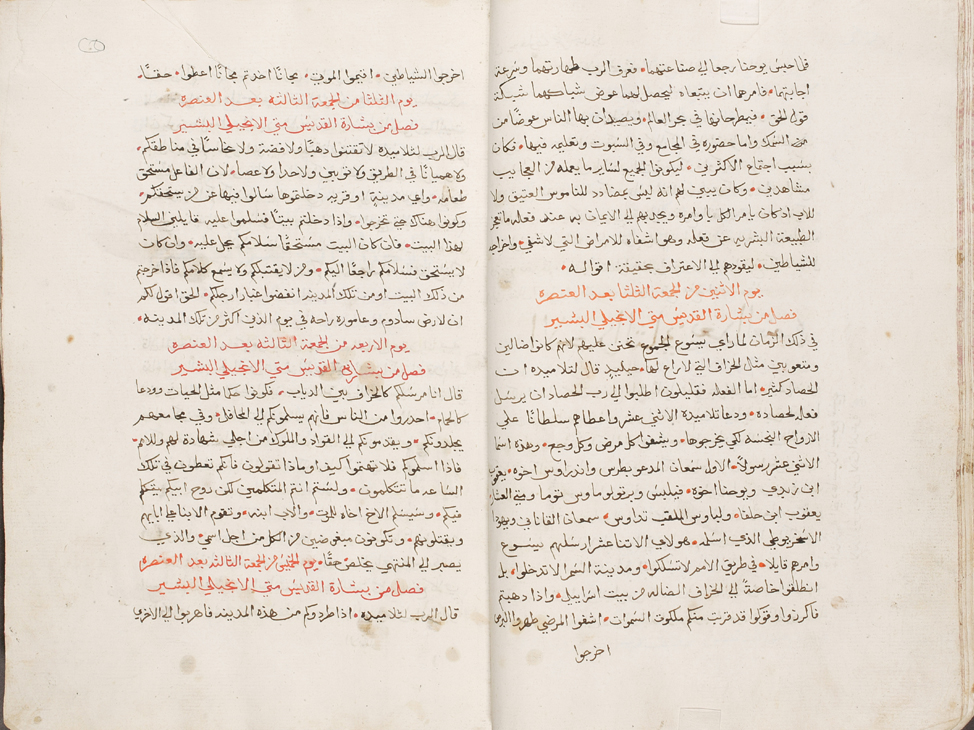 فلما حبس يوحنا رجعا الى صناعتهما • فعرف الرب طهارتهما وسرعة
اجابتهما • فامرهما ان يتبعاه ليحصل لهما عوض شباكهما شبكة
قول الحق • فيطرحانها في بحر العالم • ويصيدان بها الناس عوضًا من
السمك واما حضوره في المجامع وفي السبوت وتعليمه فيها • فكان
بسبب اجتماع الاكثر فى • ليكونوا الجميع لساير ما يعمله من العجايب
مشاهدين • وكان يبين لهم انه ليس بمضادد للناموس العتيق ولا
للاب اذ كان يامر الكل باوامره ويجذبهم الى الايمان به عند فعله ما تعجز
الطبيعة البشريه عن فعله وهو اشفاه للامراض التي لا تشفى • واخراجه
للشياطين • ليقودهم الى الاعتراف بحقيقة اقواله •
يوم الاثنين من الجمعة الثلثا بعد العنصره
فصل من بشارة القديس متى الانجيلي البشير
في ذلك الزمان لما راى يسوع الجموع تحنن عليهم لانهم كانوا ضالين
ومتعوبين مثل الخراف التي لا راع لها • حينيذ قال لتلاميذه ان
الحصاد كثير • اما الفعله فقليلون اطلبوا الى رب الحصاد ان يرسل
فعله لحصاده • ودعا تلاميذه الاثني عشر واعطاهم سلطانًا على
الارواح النجسه لكي يخرجوها • ويشفوا كل مرض وكل وجع • وهذه اسما
الاثني عشر رسولاً • الاول سمعان المدعو بطرس واندراوس اخوه • يعقوب
ابن زبدي ويوحنا اخوه • فيلبس وبرتولوماوس توما ومتى العشار
يعقوب ابن حلفا • ولباوس الملقب تداوس • سمعان القاناني ويهوذا
الاسخريوطي الذي اسلمه • هولاي الاتنا عشر ارسلهم يسوع
وامرهم قايلا • في طريق الامم لا تسلكوا • ومدينة السمرا لا تدخلوا • بل
انطلقوا خاصةً الى الخراف الضاله من بيت اسراييل • واذا ذهبتم
فاكرزوا وقولوا قد قربت منكم ملكوت السموات • اشفوا المرضى طهروا البرص
اخرجوا
اخرجوا الشياطين • اقيموا الموتى • مجانًا اخدتم مجانًا اعطوا • حقًا •
يوم الثلثا من الجمعة الثالثه بعد العنصره
فصل من بشارة القديس متى الانجيلي البشير
قال الرب لتلاميذه لا تقتنوا دهبًا ولا فضة ولا نحاسًا في مناطقكم
ولا هميانًا في الطريق ولا توبين ولا حدا ولا عصا • لان الفاعل مستحق
طعامه • واي مدينة او قريه دخلتوها سالوا فيها عن من يستحقكم •
وكونوا هناك حتى تخرجوا • واذا دخلتم بيتًا فسلموا عليه قايلين السلام
لهذا البيت • فان كان البيت مستحقًا سلامكم يحل عليه • وان كان
لا يستحق فسلامكم راجعًا اليكم • ومن لا يقبلكم ولا يسمع كلامكم فاذا خرجتم
من ذلك البيت او من تلك المدينه انفضوا غبار ارجلكم • الحق اقول لكم
ان لارض سادوم وعاموره راحه في يوم الدين اكثر من تلك المدينه •
يوم الاربعه من الجمعة الثالثه بعد العنصره
فصل من بشارة القديس متى الانجيلي البشير
قال انا مرسلكم كالخراف بين الدياب • فكونوا حكما مثل الحيات وودعا
كالحمام • احدروا من الناس فانهم يسلموكم الى المحافل • وفي مجامعهم
يجلدونكم • ويقدمونكم الى القواد والملوك من اجلي شهادة لهم وللامم •
فاذا اسلموكم فلا تهتموا كيف او ماذا تقولون فانكم تعطون في تلك
الساعه ما تتكلمون • ولستم انتم المتكلمين لكن روح ابيكم يتكلم
فيكم • وسيسلم الاخ اخاه للموت • والاب ابنه • وتقوم الابنا على ابايهم
ويقتلونهم • وتكونون مبغوضين من الكل من اجل اسمي • والذي
يصبر الى المنتهى يخلص حقًا • يوم الخميس من الجمعة الثالثه بعد العنصره
فصل من بشارة القديس متى الانجيلي البشير
قال الرب لتلاميذه • اذا طردوكم من هذه المدينه فاهربوا الى الاخرى